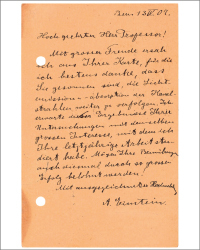 Bern 13 IV. 09.
Hoch geehrter Herr Professor!
Mit grosser Freude sah
ich aus Ihrer Karte, für die
ich bestens danke, dass
Sie gesonnen sind, die Licht-
emission u. absorption der Kanal-
strahlen weiter zu verfolgen. Ich
erwarte die Ergebnisse Ihrer
Untersuchungen mit demselben
grossen Interesse, mit dem ich
Ihre letztjährige Arbeit stu-
diert habe. Mögen Ihre Bemühungen
auch diesmal durch so grosse
Erfolg belohnt werden!
Mit ausgezeichneter Hochachtung
A. Einstein